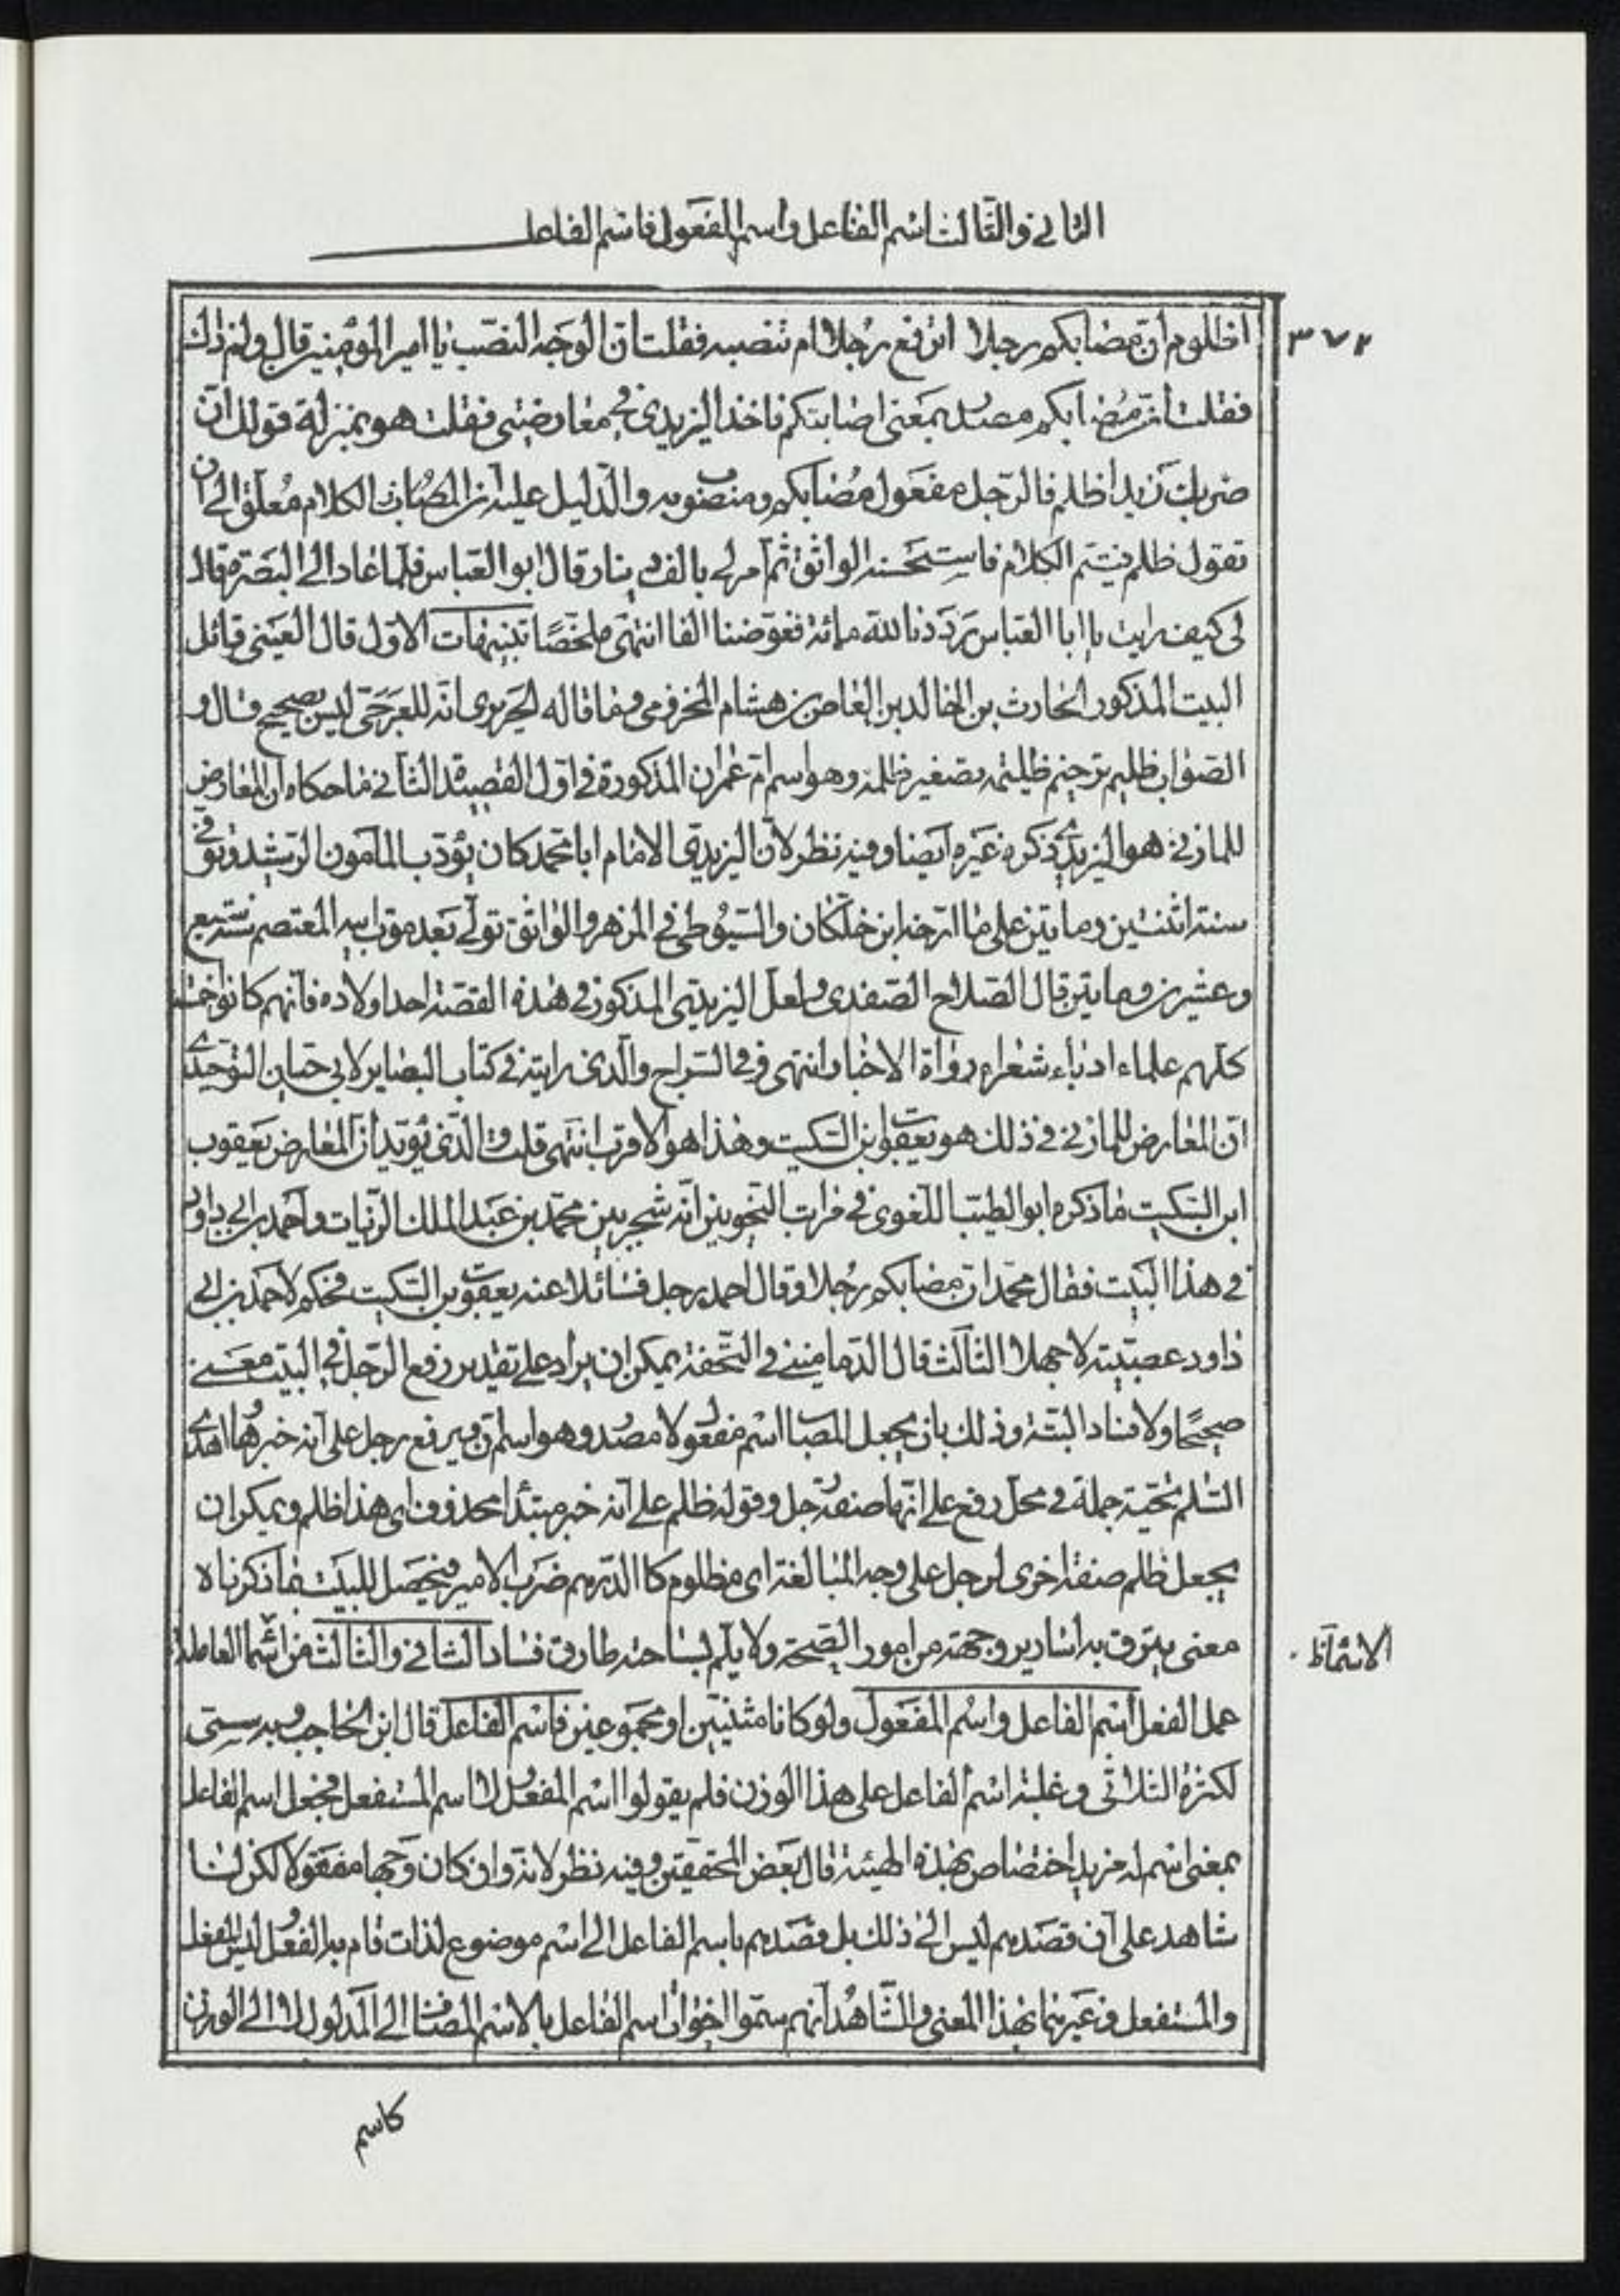 الثانی والثالث اسم الفاعل واسم المفعول فاسم الفاعل
٣٧٢
اظلوم ان مصابکم رجلا اترفع رجلا ام تنصبه فقلت ان الوجه النصب یا امیر المؤمنین قال ولم ذلک
فقلت ان مصابکم مصدر بمعنی اصابتکم فاخذ الیزیدی فی معارضتی فقلت هو بمنزلة قولک ان
ضربک زیدا ظلم فالرجل مفعول مصابکم ومنصوب به والدلیل علیه ان الکلام معلق الی ان
تقول ظلم فیتم الکلام فاستحسنه الواثق ثم امر لی بالف دینار قال ابو العباس فلما عاد الی البصرة قال
لی کیف رایت یا ابا العباس رددنا لله مائة فعوضنا الفا انتهی ملخصًا تنبیهات الاول قال العینی قائل
البیت المذکور الحارث بن الخالد بن العاص بن هشام المخزومی وما قاله الحریری انه للعرجی لیس بصحیح قال و
الصواب ظلیم ترخیم ظلیمة تصغیر ظلمة وهو اسم ام عمران المذکورة فی اول القصیدة الثانی ما حکاه ان المعارض
للمازنی هو الیزیدی ذکره غیره ایضا وفیه نظر لان الیزیدی الامام ابا محمد کان یؤدب المامون الرشید وتوفی
سنة اثنتین ومایتین علی ما ارخه ابن خلکان والسیوطی فی المزهر والواثق تولی بعد موت ابیه المعتصم سنة سبع
وعشرین ومایتین قال الصلاح الصفدی ولعل الیزیدی المذکور فی هذه القصة احد اولاده فانهم کانوا خمسة
کلهم علماء ادباء شعراء رواة الاخبار انتهی وفی السراج والذی رایته فی کتاب البصایر لابی حیان التوحیدی
ان المعارض للمازنی فی ذلک هو یعقوب بن السکیت وهذا هو الاقرب انتهی قلت والذی یؤید ان المعارض یعقوب
ابن السکیت ما ذکره ابو الطیب اللغوی فی مراتب النحویین انه شجر بین محمد بن عبد الملک الزیات واحمد بن ابی داود
فی هذا البیت فقال محمد ان مصابکم رجلا وقال احمد رجل فسائلا عنه یعقوب بن السکیت فحکم لاحمد بن ابی
داود عصبیته لا جهلا الثالث قال الدمامینی فی التحفة یمکن ان یراد علی تقدیر رفع الرجل فی البیت معنی
صحیحًا ولا فساد البتة وذلک بان یجعل المصاب اسم مفعول لا مصدر وهو اسم ان ویرفع رجل علی انه خبرها اهدی
السلام تحیة جملة فی محل رفع علی انها صفة رجل وقوله ظلم علی انه خبر مبتدأ محذوف ای هذا ظلم ویمکن ان
یجعل ظلم صفة اخری لرجل علی وجه المبالغة ای مظلوم کا الدرهم ضرب الامیر فیحصل للبیت بما ذکرناه
معنی یبرق به اساریر وجهته من امور الصحة ولا یلم بساحته طارق فساد الثانی والثالث من اسما العاملة
الاسماء
عمل الفعل اسم الفاعل واسم المفعول ولو کانا مثنیین او مجموعین فاسم الفاعل قال ابن الحاجب وبه سمی
لکثرة الثلاثی وغلبة اسم الفاعل علی هذا الوزن فلم یقولوا اسم المفعل ولا اسم المستفعل فیجعل اسم الفاعل
بمعنی اسم له مزید اختصاص بهذه الهیئة قال بعض المحققین وفیه نظر لانه وان کان وجها معقولا لکن لنا
شاهد علی ان قصدهم لیس الی ذلک بل قصدهم باسم الفاعل الی اسم موضوع لذات قام به الفعل لیس المفعل
والمستفعل وغیرهما بهذا المعنی والشاهد انهم سموا اخوات اسم الفاعل بالاسم المضاف الی المدلول لا الی الوزن
کاسم